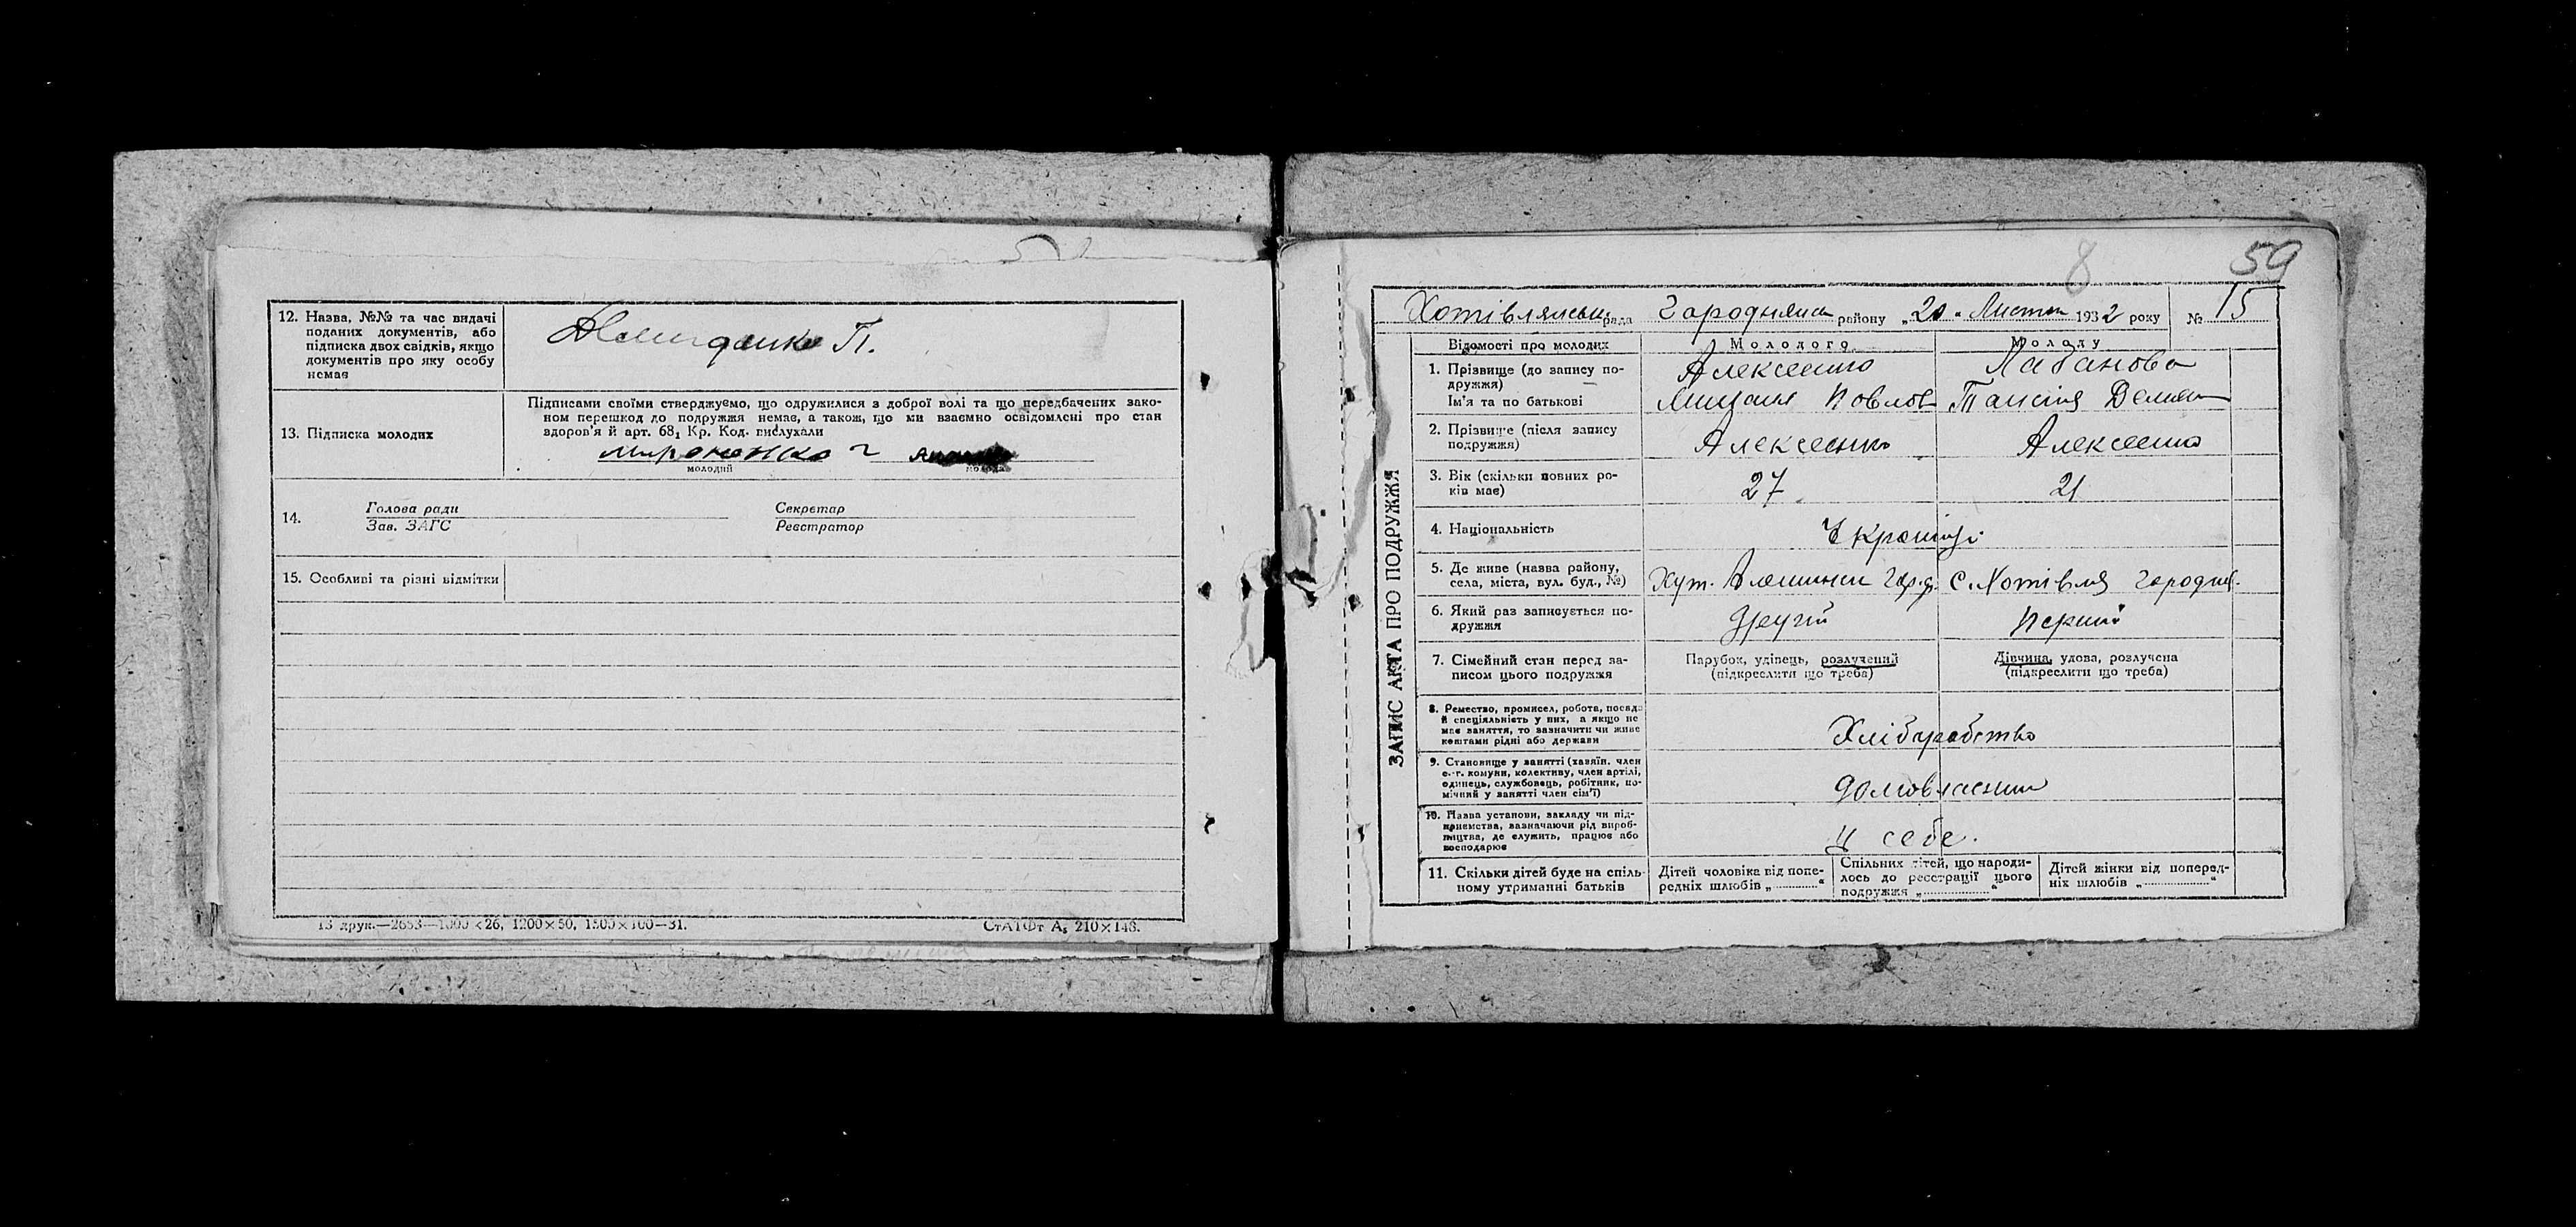 12. Назва, №№ та час видачі
поданих документів, або
підписка двох свідків, якщо
документів про яку особу
немає
П.
13. Підписка молодих
Підписами своїми стверджуємо, що одружилися з доброї волі та що передбачених зако-
ном перешкод до подружжя немає, а також, що ми взаємно освідомлені про стан
здоров'я й арт. 68₁ Кр. Код. вислухали
Мироненко Г
молодий
молода
14.
Голова ради
Зав. ЗАГС
Секретар
Реєстратор
15. Особливі та різні відмітки
13 друк.—2653—1000×26, 1200×50, 1500×100—31.
СтАТФт А₅ 210×148.
8
59
Хотівлянськ рада Городнянськ району „20" Листоп 1932 року № 15
ЗАПИС АКТА ПРО ПОДРУЖЖЯ
Відомості про молодих
Молодого
Молоду
1. Прізвище (до запису по-
дружжя)
Ім'я та по батькові
Алексеенко
Лабанова
Павлов
Таисія Демян
2. Прізвище (після запису
подружжя)
Алексеенко
Алексеенко
3. Вік (скільки повних ро-
ків має)
27
21
4. Національність
Украінці
5. Де живе (назва району,
села, міста, вул. буд., №)
Хут. Гор.
с. Хотівля Городня.
6. Який раз записується по-
дружжя
Другий
Перший
7. Сімейний стан перед за-
писом цього подружжя
Парубок, удівець, розлучений
(підкреслити що треба)
Дівчина, удова, розлучена
(підкреслити що треба)
8. Ремество, промисел, робота, посада
й спеціяльність у них, а якщо не
має заняття, то зазначити чи живе
коштами рідні або держави
Хліборобство
9. Становище у занятті (хазяїн. член
с.-г. комуни, колективу, член артілі,
одинець, службовець, робітник, по-
мічний у занятті член сім'ї)
домовласник
10. Назва установи, закладу чи під-
приємства, зазначаючи рід вироб-
ництва, де служить, працює або
господарює
у себе.
11. Скільки дітей буде на спіль-
ному утриманні батьків
Дітей чоловіка від попе-
редніх шлюбів „............"
Спільних дітей, що народи-
лось до реєстрації цього
подружжя „............"
Дітей жінки від поперед-
ніх шлюбів „............"